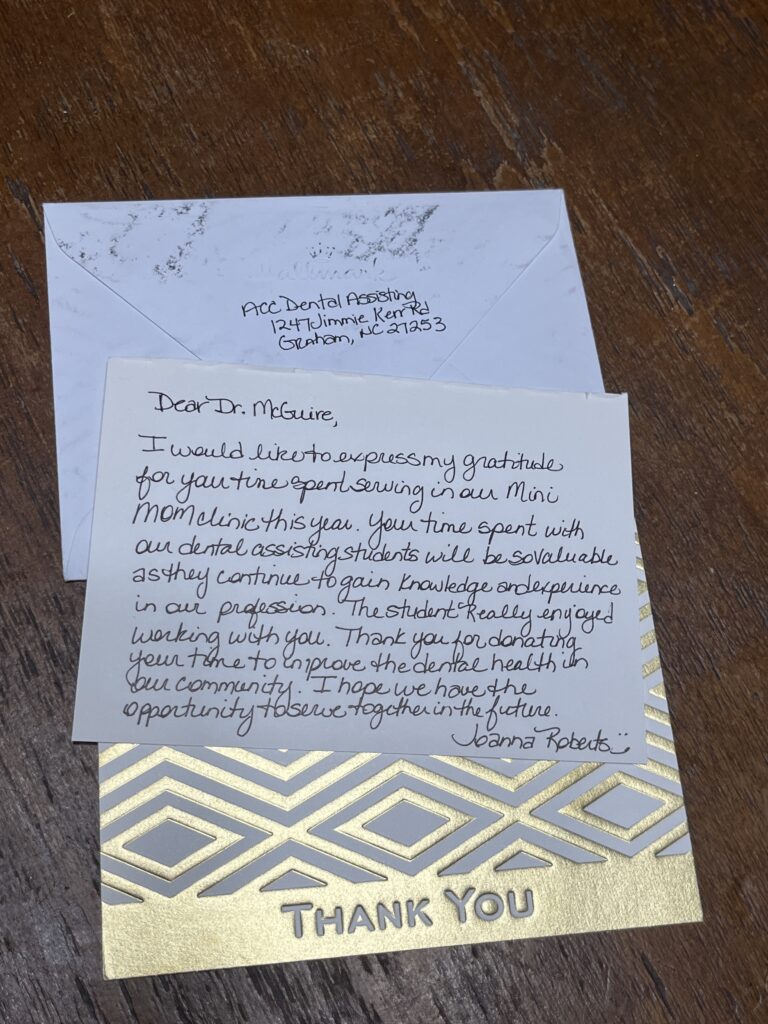 Hallmark
ACC Dental Assisting
1247 Jimmie Kerr Rd
Graham, NC 27253
Dear Dr. McGuire,
I would like to express my gratitude
for your time spent serving in our Mini
MOM clinic this year. Your time spent with
our dental assisting students will be so valuable
as they continue to gain knowledge and experience
in our profession. The student really enjoyed
working with you. Thank you for donating
your time to improve the dental health in
our community. I hope we have the
opportunity to serve together in the future.
Joanna Roberts :)
THANK YOU